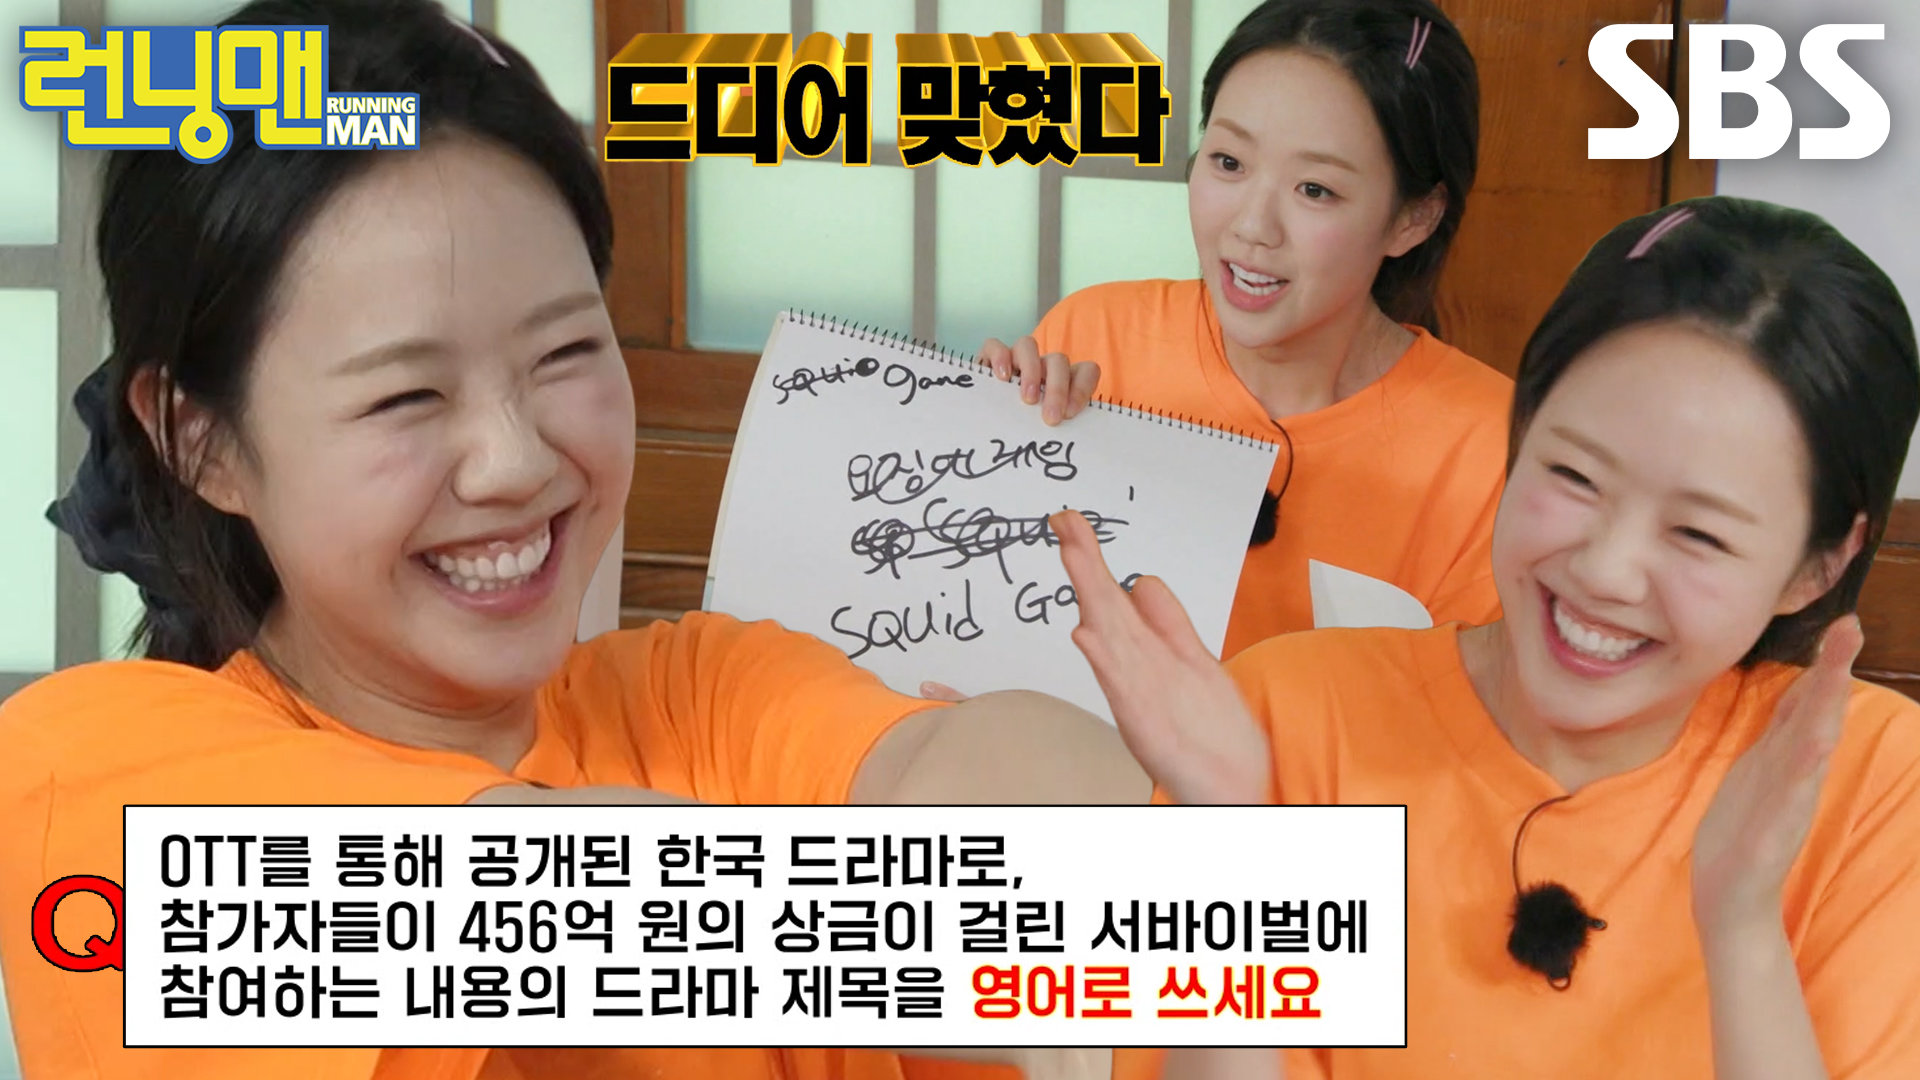 런닝맨
RUNNING
MAN
드디어 맞혔다
SBS
game
SQUid Ga
Q
OTT를 통해 공개된 한국 드라마로,
참가자들이 456억 원의 상금이 걸린 서바이벌에
참여하는 내용의 드라마 제목을 영어로 쓰세요